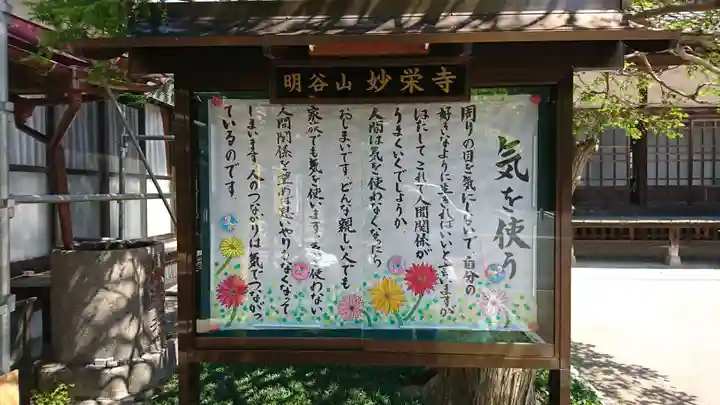 明谷山 妙栄寺
気を使う
周りの目を気にしないで 自分の
好きなように生きればいいと言いますが
はたしてこれで人間関係が
うまくいくでしょうか
人間は気を使わなくなったら
おしまいです。どんな親しい人でも
家族でも気を使います。気を使わない
人間関係を
思いやりもなくなって
しまいます。人のつながりは気でつながっ
ているのです。